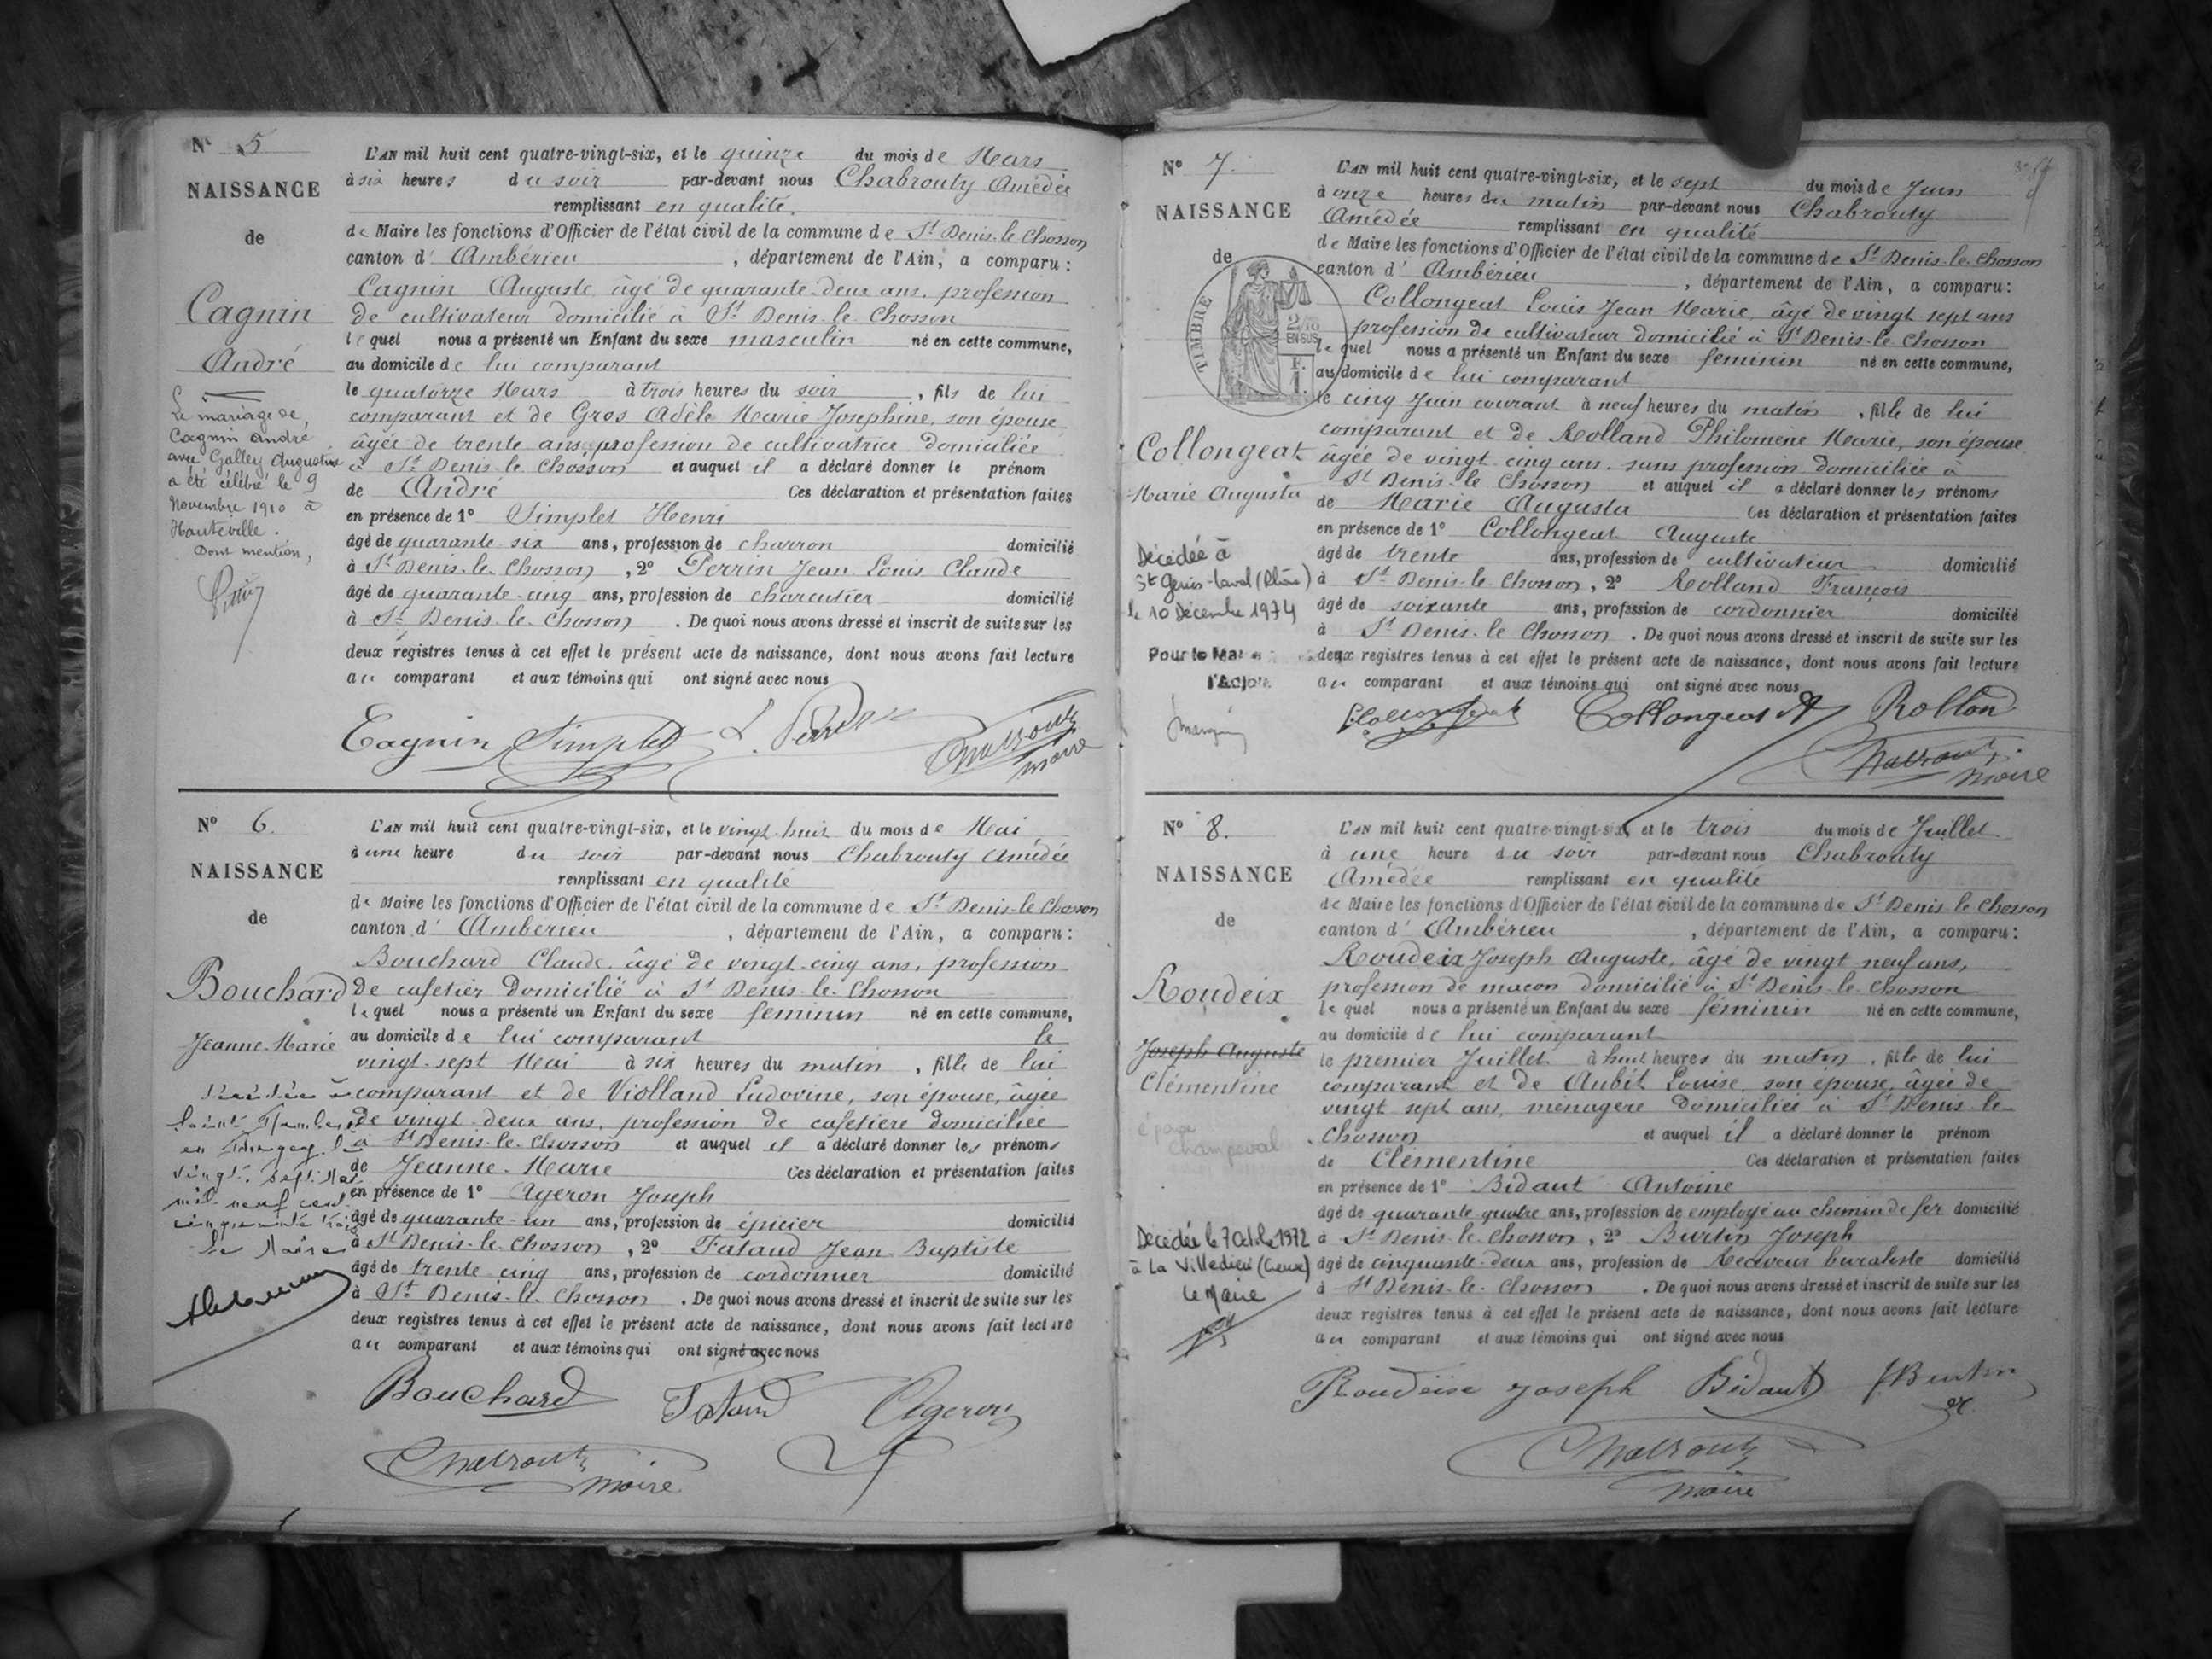 N° 5
NAISSANCE
de
Cagnin
André
Le mariage de
Cagnin André
avec Golley Augustine
a été célébré le 9
Novembre 1910 à
Hauteville.
Dont mention,
L'AN mil huit cent quatre-vingt-six, et le quinze du mois de Mars
à six heures du soir par-devant nous Chabrouty Amédée
remplissant en qualité
de Maire les fonctions d'Officier de l'état civil de la commune de St Denis-le-Chosson
canton d'Ambérieu, département de l'Ain, a comparu:
Cagnin Auguste, âgé de quarante-deux ans, profession
de cultivateur domicilié à St Denis-le-Chosson
lequel nous a présenté un Enfant du sexe masculin né en cette commune,
au domicile de lui comparant
le quatorze Mars à trois heures du soir, fils de lui
comparant et de Gros Adèle Marie Josephine, son épouse
âgée de trente ans, profession de cultivatrice domiciliée
à St Denis-le-Chosson et auquel il a déclaré donner le prénom
de André Ces déclaration et présentation faites
en présence de 1° Simplet Henri
âgé de quarante-six ans, profession de charron domicilié
à St Denis-le-Chosson, 2° Perrin Jean Louis Claude
âgé de quarante-cinq ans, profession de charcutier domicilié
à St Denis-le-Chosson. De quoi nous avons dressé et inscrit de suite sur les
deux registres tenus à cet effet le présent acte de naissance, dont nous avons fait lecture
au comparant et aux témoins qui ont signé avec nous
Cagnin Simplet L. Perrin Chabrouty
maire
N° 6.
NAISSANCE
de
Bouchard
Jeanne-Marie
Décédée à
Saint Rambert
en Bugey le
vingt-sept Mai
mil neuf cent
cinquante trois
Le Maire
L'AN mil huit cent quatre-vingt-six, et le vingt-huit du mois de Mai
à une heure du soir par-devant nous Chabrouty Amédée
remplissant en qualité
de Maire les fonctions d'Officier de l'état civil de la commune de St Denis-le-Chosson
canton d'Ambérieu, département de l'Ain, a comparu:
Bouchard Claude, âgé de vingt-cinq ans, profession
de cafetier domicilié à St Denis-le-Chosson
lequel nous a présenté un Enfant du sexe féminin né en cette commune,
au domicile de lui comparant le
vingt-sept Mai à six heures du matin, fille de lui
comparant et de Violland Ludovine, son épouse, âgée
de vingt-deux ans, profession de cafetière domiciliée
à St Denis-le-Chosson et auquel il a déclaré donner les prénoms
de Jeanne-Marie Ces déclaration et présentation faites
en présence de 1° Ageron Joseph
âgé de quarante-un ans, profession de épicier domicilié
à St Denis-le-Chosson, 2° Tataud Jean-Baptiste
âgé de trente-cinq ans, profession de cordonnier domicilié
à St Denis-le-Chosson. De quoi nous avons dressé et inscrit de suite sur les
deux registres tenus à cet effet le présent acte de naissance, dont nous avons fait lecture
au comparant et aux témoins qui ont signé avec nous
Bouchard Tataud Ageron
Chabrouty
maire
N° 7.
NAISSANCE
de
TIMBRE
2/10 EN SUS
F. 1.
Collongeat
Marie Augusta
Décédée à
St Genis-Laval (Rhône)
le 10 Décembre 1974
Pour le Maire
l'Adjoint
L'AN mil huit cent quatre-vingt-six, et le sept du mois de Juin
à onze heures du matin par-devant nous Chabrouty
Amédée remplissant en qualité
de Maire les fonctions d'Officier de l'état civil de la commune de St Denis-le-Chosson
canton d'Ambérieu, département de l'Ain, a comparu:
Collongeat Louis Jean Marie, âgé de vingt-sept ans
profession de cultivateur domicilié à St Denis-le-Chosson
lequel nous a présenté un Enfant du sexe féminin né en cette commune,
au domicile de lui comparant
le cinq Juin courant à neuf heures du matin, fille de lui
comparant et de Rolland Philomène Marie, son épouse
âgée de vingt-cinq ans, sans profession domiciliée à
St Denis-le-Chosson et auquel il a déclaré donner les prénoms
de Marie Augusta Ces déclaration et présentation faites
en présence de 1° Collongeat Auguste
âgé de trente ans, profession de cultivateur domicilié
à St Denis-le-Chosson, 2° Rolland François
âgé de soixante ans, profession de cordonnier domicilié
à St Denis-le-Chosson. De quoi nous avons dressé et inscrit de suite sur les
deux registres tenus à cet effet le présent acte de naissance, dont nous avons fait lecture
au comparant et aux témoins qui ont signé avec nous
Collongeat Collongeat A Rolland
Chabrouty
maire
N° 8.
NAISSANCE
de
Roudeix
Joseph Auguste
Clémentine
épouse
Champeval
Décédée le 7 Oct. 1972
à La Villedieu (Creuse)
Le Maire
L'AN mil huit cent quatre-vingt-six, et le trois du mois de Juillet
à une heure du soir par-devant nous Chabrouty
Amédée remplissant en qualité
de Maire les fonctions d'Officier de l'état civil de la commune de St Denis-le-Chosson
canton d'Ambérieu, département de l'Ain, a comparu:
Roudeix Joseph Auguste, âgé de vingt-neuf ans,
profession de maçon domicilié à St Denis-le-Chosson
lequel nous a présenté un Enfant du sexe féminin né en cette commune,
au domicile de lui comparant
le premier Juillet à huit heures du matin, fille de lui
comparant et de Aubit Louise, son épouse, âgée de
vingt-sept ans, ménagère domiciliée à St Denis-le-
Chosson et auquel il a déclaré donner le prénom
de Clémentine Ces déclaration et présentation faites
en présence de 1° Bidaut Antoine
âgé de quarante-quatre ans, profession de employé au chemin de fer domicilié
à St Denis-le-Chosson, 2° Burtin Joseph
âgé de cinquante-deux ans, profession de Receveur buraliste domicilié
à St Denis-le-Chosson. De quoi nous avons dressé et inscrit de suite sur les
deux registres tenus à cet effet le présent acte de naissance, dont nous avons fait lecture
au comparant et aux témoins qui ont signé avec nous
Roudeix Joseph Bidaut J Burtin
Chabrouty
maire